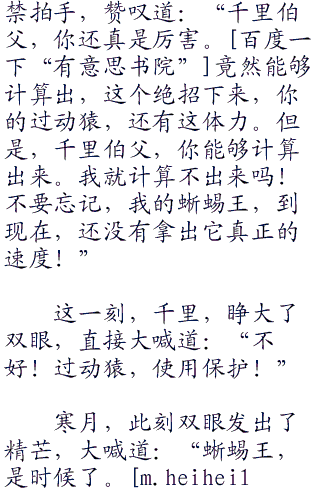 禁拍手，赞叹道：“千里伯
父，你还真是厉害。[百度一
下“有意思书院”]竟然能够
计算出，这个绝招下来，你
的过动猿，还有这体力。但
是，千里伯父，你能够计算
出来。我就计算不出来吗！
不要忘记，我的蜥蜴王，到
现在，还没有拿出它真正的
速度！”
这一刻，千里，睁大了
双眼，直接大喊道：“不
好！过动猿，使用保护！”
寒月，此刻双眼发出了
精芒，大喊道：“蜥蜴王，
是时候了。[m.heihei1